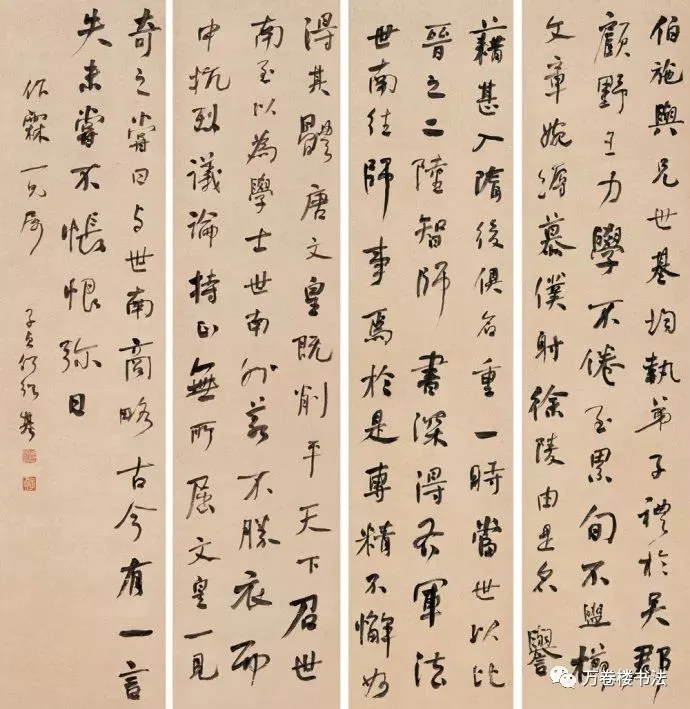 伯施與兄世基均執弟子禮於吳郡
顧野王力學不倦至累旬不盥櫛
文章婉縟慕僕射徐陵由是名譽
藉甚入隋後俱名重一時當世以比
晉之二陸智師書深得右軍法
世南往師事焉於是專精不懈妙
得其體唐文皇既削平天下召世
南至以為學士世南外若不勝衣而
中抗烈議論持正無所屈文皇一見
奇之嘗曰與世南商略古今有一言
失未嘗不悵恨彌日
霖一兄屬
子貞何紹基
万卷楼书法